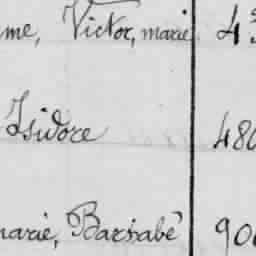 me, Victor, marie 4
Isidore 480
marie, Barnabé 900